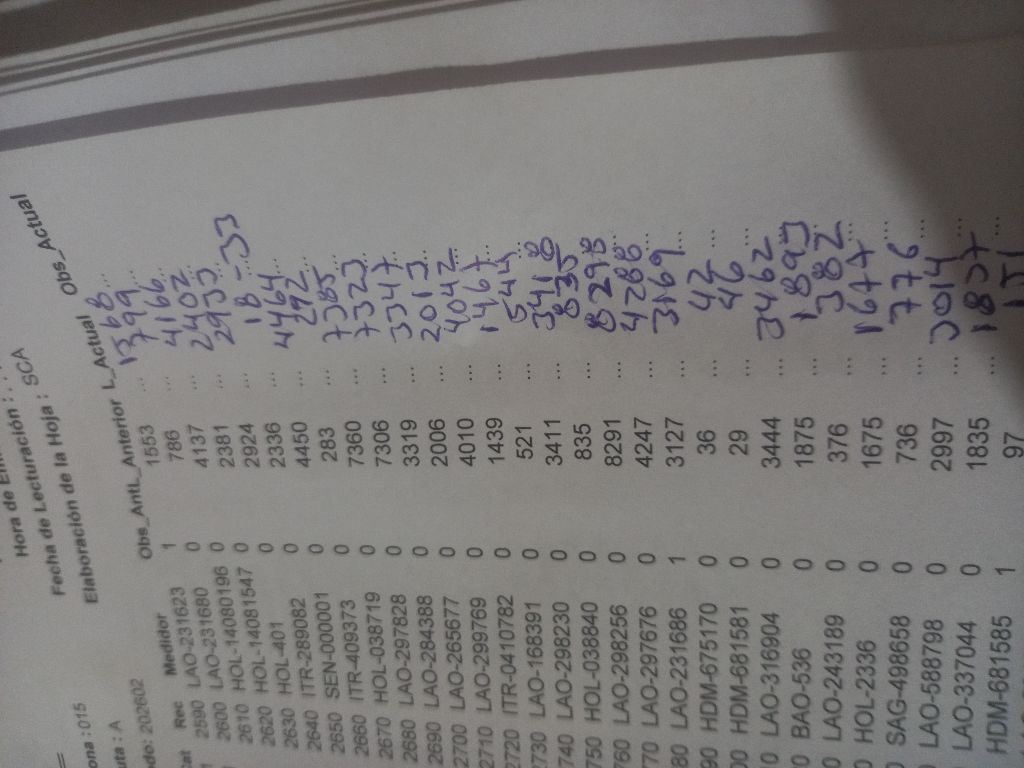 Hora de
Fecha de Lecturación :
Elaboración de la Hoja : SCA
ona : 015
uta : A
do: 202602
Cat Rec Medidor Obs_Ant L_Anterior L_Actual Obs_Actual
2590 LAO-231623 1 1553 ... 1568 ...
2600 LAO-231680 0 786 ... 799 ...
2610 HOL-14080196 0 4137 ... 4166 ...
2620 HOL-14081547 0 2381 ... 2402 ...
2630 HOL-401 0 2924 ... 2933 ...
2640 ITR-289082 0 2336 ... 18-33 ...
2650 SEN-000001 0 4450 ... 4464 ...
2660 ITR-409373 0 283 ... 292 ...
2670 HOL-038719 0 7360 ... 7385 ...
2680 LAO-297828 0 7306 ... 7323 ...
2690 LAO-284388 0 3319 ... 3347 ...
2700 LAO-265677 0 2006 ... 2013 ...
2710 LAO-299769 0 4010 ... 4042 ...
2720 ITR-0410782 0 1439 ... 1467 ...
2730 LAO-168391 0 521 ... 544 ...
740 LAO-298230 0 3411 ... 3418 ...
750 HOL-038840 0 835 ... 835 ...
760 LAO-298256 0 8291 ... 8298 ...
770 LAO-297676 0 4247 ... 4288 ...
80 LAO-231686 1 3127 ... 3169 ...
90 HDM-675170 0 36 ... 42 ...
00 HDM-681581 0 29 ... 46 ...
10 LAO-316904 0 3444 ... 3462 ...
0 BAO-536 0 1875 ... 1893 ...
0 LAO-243189 0 376 ... 382 ...
0 HOL-2336 0 1675 ... 1677 ...
0 SAG-498658 0 736 ... 776 ...
0 LAO-588798 0 2997 ... 3014 ...
LAO-337044 0 1835 ... 1837 ...
HDM-681585 1 97 ... 151